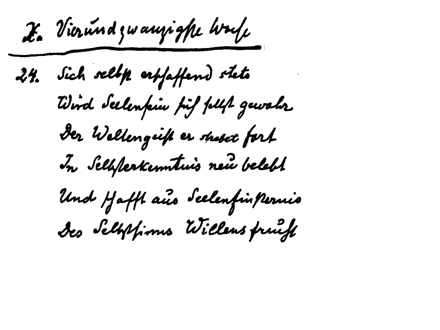 X. Vierundzwanzigste Woche
24. Sich selbst erschaffend stets
Wird Seelensein sich selbst gewahr
Der Weltengeist er strebet fort
In Selbsterkenntnis neu belebt
Und schafft aus Seelenfinsternis
Des Selbstsinns Willensfrucht